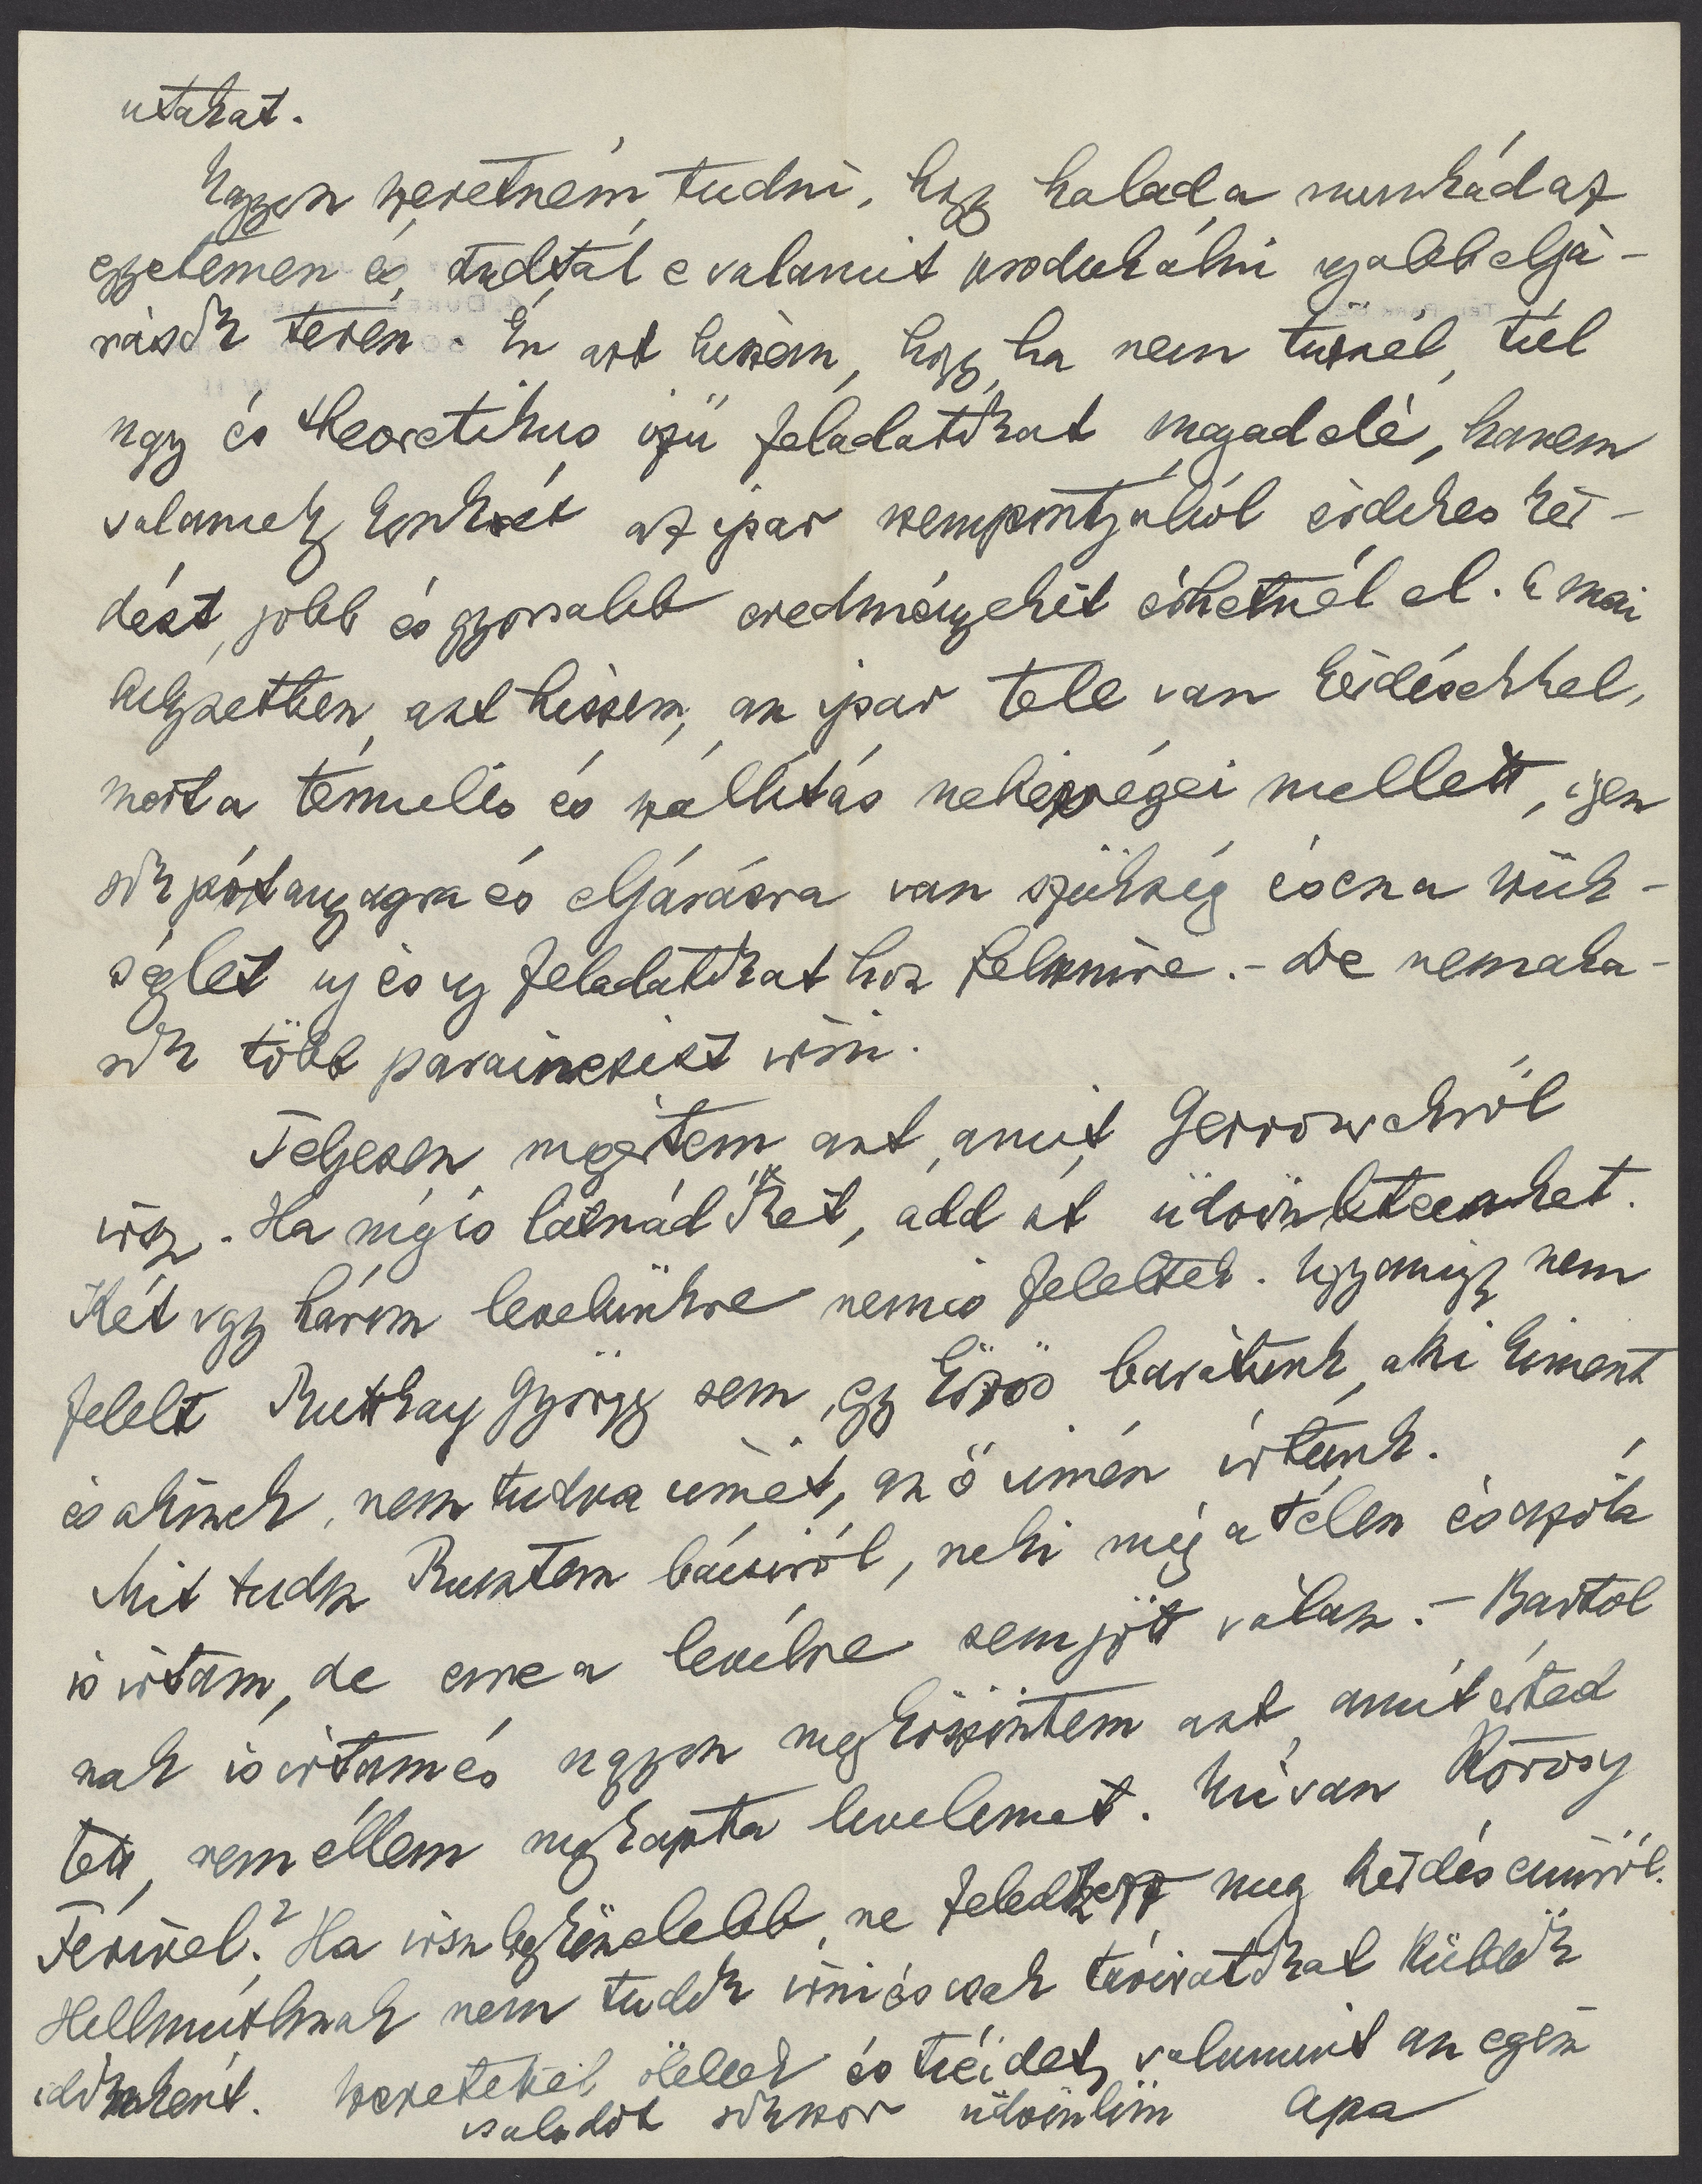 utakat.
Nagyon szeretném tudni, hogy halad a munkád az
egyetemen és, tudtál e valamit produkálni ujabb eljá-
rások terén. Én azt hiszem, hogy, ha nem tűznél, túl
nagy és theoretikus izü feladatokat magad elé, hanem
valamely konkrét az ipar szempontjából érdekes kér-
dést, jobb és gyorsabb eredményeket érhetnél el. A mai
helyzetben, azt hiszem, az ipar tele van kérdésekkel,
mert a termelés és szállitás nehézségei mellett, igen
sok pótanyagra és eljárásra van szükség és ez a szük-
séglet uj és uj feladatokat hoz felszinre. - De nem aka-
rok több parainesist irni.
Teljesen megértem azt, amit Gerrowekről
irsz. - Ha mégis látnád őket, add át üdvözletemket.
Két vagy három levelünkre nem is feleltek. Ugyanigy nem
felelt Ruttkay György sem, egy közös barátunk, aki kiment
és akinek, nem tudva cimét, az ő cimén irtunk.
Mit tudsz Rusztem bácsiról, neki még a télen és azóta
is irtam, de erre a levélre sem jött válasz. - Bartol
nak is irtam és nagyon megköszöntem azt, amit érted
tett, remélem megkapta levelemet. Mi van Körösy
Ferivel? Ha irsz legközelebb, ne feledkezz meg kérdéseimről.
Hellmuthnak nem tudok irni és csak táviratokat küldök
időnként. Szeretettel ölellek és tiéidet, valamint az egész
családot sokszor üdvözlöm Apa